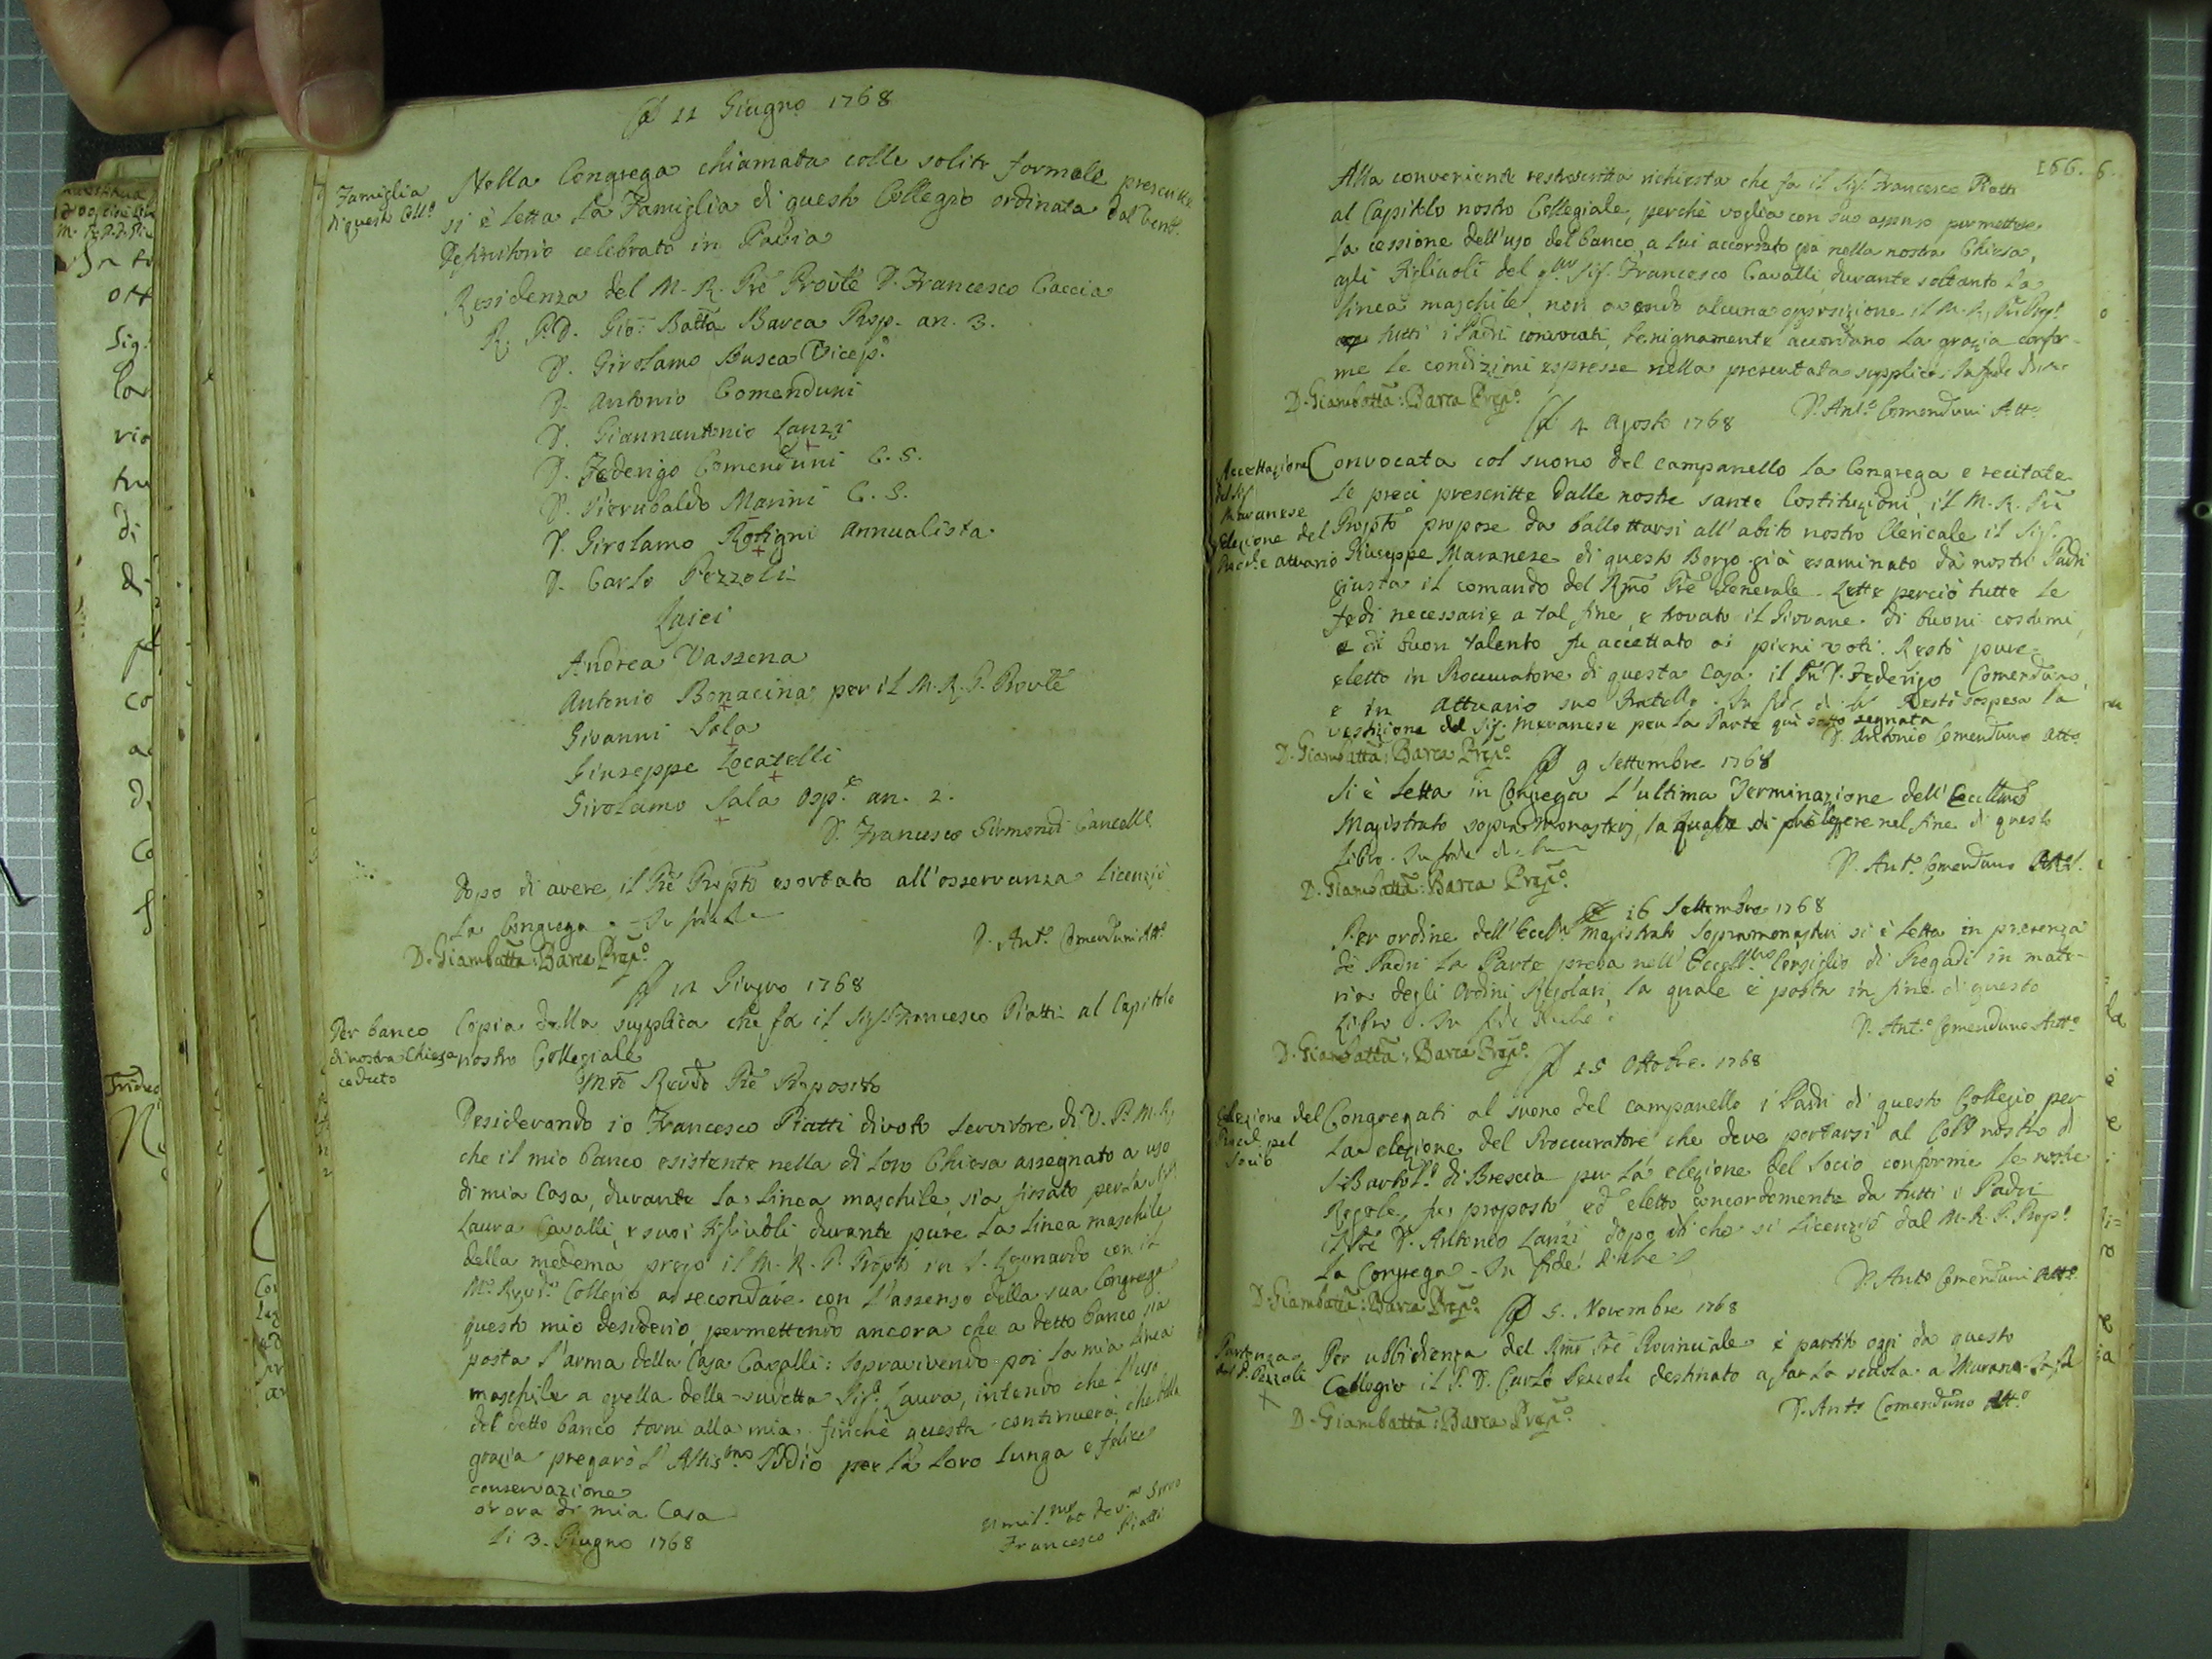 A 11 Giugno 1768
Famiglia
di questo Coll.o
Nella Congrega chiamata colle solite formole prescritte
si è letta la Famiglia di questo Collegio ordinata dal Ven.
Definitorio celebrato in Pavia
Residenza del M. R. Pre Provle D. Francesco Caccia
R. P. D. Gio: Batta Barca Prep. an. 3.
D. Girolamo Busca Vicep.o
D. Antonio Comenduni
D. Giannantonio Lanzi
D. Federigo Comenduni C. S.
D. Pierubaldo Marini C. S.
D. Girolamo Rotigni Annualista
D. Carlo Pezzoli
Laici
Andrea Vassena
Antonio Bonacina per il M. R. P. Provle
Giovanni Sala
Giuseppe Locatelli
Girolamo Sala Osp.e an. 2.
D. Francesco Sirmondi Cancell.e
Dopo di avere il Pre Prepto esortato all'osservanza licenziò
la Congrega. In fede
D. Giambatta: Barca Prep.o
D. Ant.o Comenduni Att.o
A 12 Giugno 1768
Per banco
di nostra Chiesa
ceduto
Copia della supplica che fa il Sig.r Francesco Piatti al Capitolo
nostro Collegiale
Mto Revdo Pre Preposito
Desiderando io Francesco Piatti divoto servitore di V. P. M. R.
che il mio banco esistente nella di loro Chiesa assegnato a uso
di mia Casa, durante la linea maschile, sia fissato per la Sig.ra
Laura Cavalli, e suoi Figliuoli durante pure la linea maschile
della medema prego il M. R. P. Prepto in S. Leonardo con il
M.o Rev.do Collegio a secondare con l'assenso della sua Congrega
questo mio desiderio, permettendo ancora che a detto banco sia
posta l'arma della Casa Cavalli: sopravivendo poi la mia linea
maschile a quella della sudetta Sig.a Laura, intendo che l'uso
del detto banco torni alla mia, finchè questa continuerà, che della
grazia pregarò l'Altis.mo Iddio per la loro lunga e felice
conservazione
or ora di mia Casa
li 3. Giugno 1768
Umil.mo et dev.mo Servo
Francesco Piatti
166. 6.
Alla conveniente restroscritta richiesta che fa il Sig.r Francesco Piatti
al Capitolo nostro Collegiale, perchè voglia con suo assenso permettere
la cessione dell'uso del banco, a lui accordato già nella nostra Chiesa,
agli Figliuoli del Sig.r Francesco Cavalli, durante soltanto la
linea maschile, non avendo alcuna opposizione il M. R. Pre Prep.o
tutti i Padri convocati, benignamente accordano la grazia confor-
me le condizioni espresse nella presentata supplica. In fede
D. Giambatta: Barca Prep.o
D. Ant.o Comenduni Att.o
A 4 Agosto 1768
Accettazione
del Sig.
Maranese
Elezione del
Proc. e attuario
Convocata col suono del campanello la Congrega e recitate
le preci prescritte dalle nostre sante Costituzioni, il M. R. Pre
Prepto propose da ballottarsi all'abito nostro Clericale il Sig.r
Giuseppe Maranese di questo Borgo già esaminato da nostri Padri
giusta il comando del Rmo Pre Generale. Lette perciò tutte le
fedi necessarie a tal fine, e trovato il Giovane di buoni costumi,
e di buon talento fu accettato a pieni voti. Restò pure
eletto in Proccuratore di questa Casa il Pre D. Federigo Comenduno,
e in Attuario suo Fratello. In fede Restò sospesa la
vestizione del Sig.r Maranese per la Parte quì sotto segnata
D. Antonio Comenduno Att.o
D. Giambatta: Barca Prep.o
A 9 Settembre 1768
Si è letta in Congrega l'ultima Terminazione dell'Eccell.mo
Magistrato sopra Monasterj, la quale si può legere nel fine di questo
Libro. In fede
D. Ant.o Comenduno Att.o
D. Giambatta: Barca Prep.o
A 16 Settembre 1768
Per ordine dell'Eccell.mo Magistrato Sopramonasteri si è letta in presenza
de Padri la Parte presa nell'Eccell.mo Consiglio di Pregadi in mate-
ria degli Ordini Regolari, la quale è posta in fine di questo
Libro. In fede
D. Ant.o Comenduno Att.o
D. Giambatta: Barca Prep.o
A 25 Ottobre 1768
Elezione del
Proc. pel
Socio
Congregati al suono del campanello i Padri di questo Collegio per
la elezione del Proccuratore che deve portarsi al Coll.o nostro di
S. Bartol.o di Brescia per la elezione del Socio conforme le nostre
Regole, fu proposto ed eletto concordemente da tutti i Padri
il Pre D. Antonio Lanzi dopo di che si licenziò dal M. R. P. Prep.o
la Congrega. In fede
D. Ant.o Comenduni Att.o
D. Giambatta: Barca Prep.o
A 5. Novembre 1768
Partenza
del P. Pezzoli
Per ubbidienza del Rmo Pre Provinciale è partito oggi da questo
Collegio il P. D. Carlo Pezzoli destinato a far la scuola a Murano. In fede
D. Ant.o Comenduno Att.o
D. Giambatta: Barca Prep.o